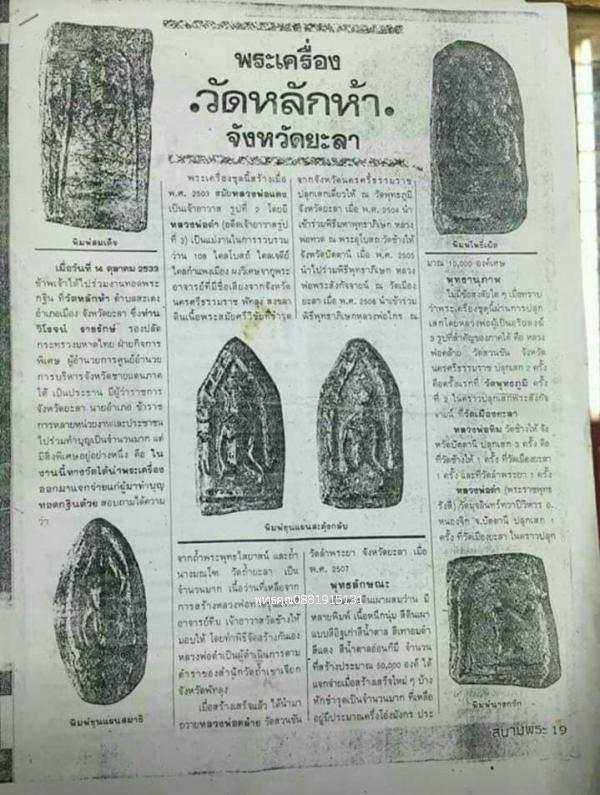 พระเครื่อง
วัดหลักห้า
จังหวัดยะลา
พิมพ์สมเด็จ
เมื่อวันที่ ๑๔ ตุลาคม 2533
ข้าพเจ้าได้ไปร่วมงานทอดพระ
กฐิน ที่วัดหลักห้า ตำบลสะเตง
อำเภอเมือง จังหวัดยะลา ซึ่งท่าน
วิโรจน์ ราชรักษ์ รองปลัด
กระทรวงมหาดไทย ฝ่ายกิจการ
พิเศษ ผู้อำนวยการศูนย์อำนวย
การบริหารจังหวัดชายแดนภาค
ใต้ เป็นประธาน มีผู้ว่าราชการ
จังหวัดยะลา นายอำเภอ ข้าราช
การหลายหน่วยงานและประชาชน
ไปร่วมทำบุญเป็นจำนวนมาก แต่
มีสิ่งพิเศษอยู่อย่างหนึ่ง คือ ใน
งานนี้ทางวัดได้นำพระเครื่อง
ออกมาแจกจ่ายแก่ผู้มาทำบุญ
ทอดกฐินด้วย สอบถามได้ความ
ว่า
พิมพ์ขุนแผนสมาธิ
พระเครื่องชุดนี้สร้างเมื่อ
พ.ศ. 2503 สมัยหลวงพ่อแดง
เป็นเจ้าอาวาส รูปที่ 2 โดยมี
หลวงพ่อดำ (อดีตเจ้าอาวาสรูป
ที่ 3) เป็นแม่งานในการรวบรวม
ว่าน 108 ไคลโบสถ์ ไคลเจดีย์
ไคลกำแพงเมือง ผงวิเศษจากพระ
อาจารย์ที่มีชื่อเสียงจากจังหวัด
นครศรีธรรมราช พัทลุง สงขลา
ดินเนื้อพระสมัยศรีวิชัยที่ชำรุด
พิมพ์ขุนแผนสะดุ้งกลับ
จากถ้ำพระพุทธไสยาสน์ และถ้ำ
นางมณโฑ วัดถ้ำยะลา เป็น
จำนวนมาก เนื้อว่านที่เหลือจาก
การสร้างหลวงพ่อทวด
อาจารย์ทิม เจ้าอาวาสวัดช้างให้
มอบให้ โดยทำพิธีจัดสร้างกันเอง
หลวงพ่อดำเป็นผู้ดำเนินการตาม
ตำราของสำนักวัดถ้ำเขาเจียก
จังหวัดพัทลุง
เมื่อสร้างเสร็จแล้ว ได้นำมา
ถวายหลวงพ่อคล้าย วัดสวนขัน
จากจังหวัดนครศรีธรรมราช
ปลุกเสกเดี่ยวให้ ณ วัดพุทธภูมิ
จังหวัดยะลา เมื่อ พ.ศ. 2504 นำ
เข้าร่วมพิธีมหาพุทธาภิเษก หลวง
พ่อทวด ณ พระอุโบสถวัดช้างให้
จังหวัดปัตตานี เมื่อ พ.ศ. 2505
นำไปร่วมพิธีพุทธาภิเษก หลวง
พ่อพระสังกัจจายน์ ณ วัดเมือง
ยะลา เมื่อ พ.ศ. 2506 นำเข้าร่วม
พิธีพุทธาภิเษกหลวงพ่อไกร ณ
วัดลำพระยา จังหวัดยะลา เมื่อ
พ.ศ. 2507
พุทธลักษณะ
ดินเผาผสมว่าน มี
หลายพิมพ์ เนื้อหนึกนุ่ม สีดินเผา
แบบสีอิฐเก่าสีน้ำตาล สีเทาอมดำ
สีแดง สีน้ำตาลอ่อนก็มี จำนวน
ที่สร้างประมาณ 50,000 องค์ ได้
แจกจ่ายเมื่อสร้างเสร็จใหม่ๆ บ้าง
หักชำรุดเป็นจำนวนมาก ที่เหลือ
อยู่มีประมาณครึ่งโอ่งมังกร ประ
พิมพ์โพธิ์เม็ด
มาณ 10,000 องค์เศษ
พุทธานุภาพ
ไม่มีข้อสงสัยใด ๆ เมื่อทราบ
ว่าพระเครื่องชุดนี้ผ่านการปลุก
เสกโดยหลวงพ่อผู้เป็นอริยสงฆ์
3 รูปที่สำคัญของภาคใต้ คือ หลวง
พ่อคล้าย วัดสวนขัน จังหวัด
นครศรีธรรมราช ปลุกเสก 2 ครั้ง
คือครั้งแรกที่ วัดพุทธภูมิ ครั้ง
ที่ 2 ในคราวปลุกเสกพระสังกัจ
จายน์ ที่วัดเมืองยะลา
หลวงพ่อทิม วัดช้างให้ จัง
หวัดปัตตานี ปลุกเสก 3 ครั้ง คือ
ที่วัดช้างให้ 1 ครั้ง ที่วัดเมืองยะลา
1 ครั้ง และที่วัดลำพระยา 1 ครั้ง
หลวงพ่อดำ (พระราชพุทธ
รังสี) วัดมุจลินทวาปีวิหาร อ.
หนองจิก จ.ปัตตานี ปลุกเสก 1
ครั้ง ที่วัดเมืองยะลา ในคราวปลุก
พิมพ์นางกวัก
สนามพระ 19
พุทธคุณ0881915131